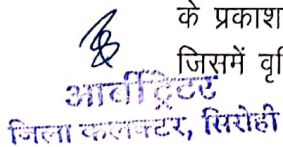 के प्रकाश
जिसमें वृ
आर्बीट्रेटर
जिला कलक्टर, सिरोही